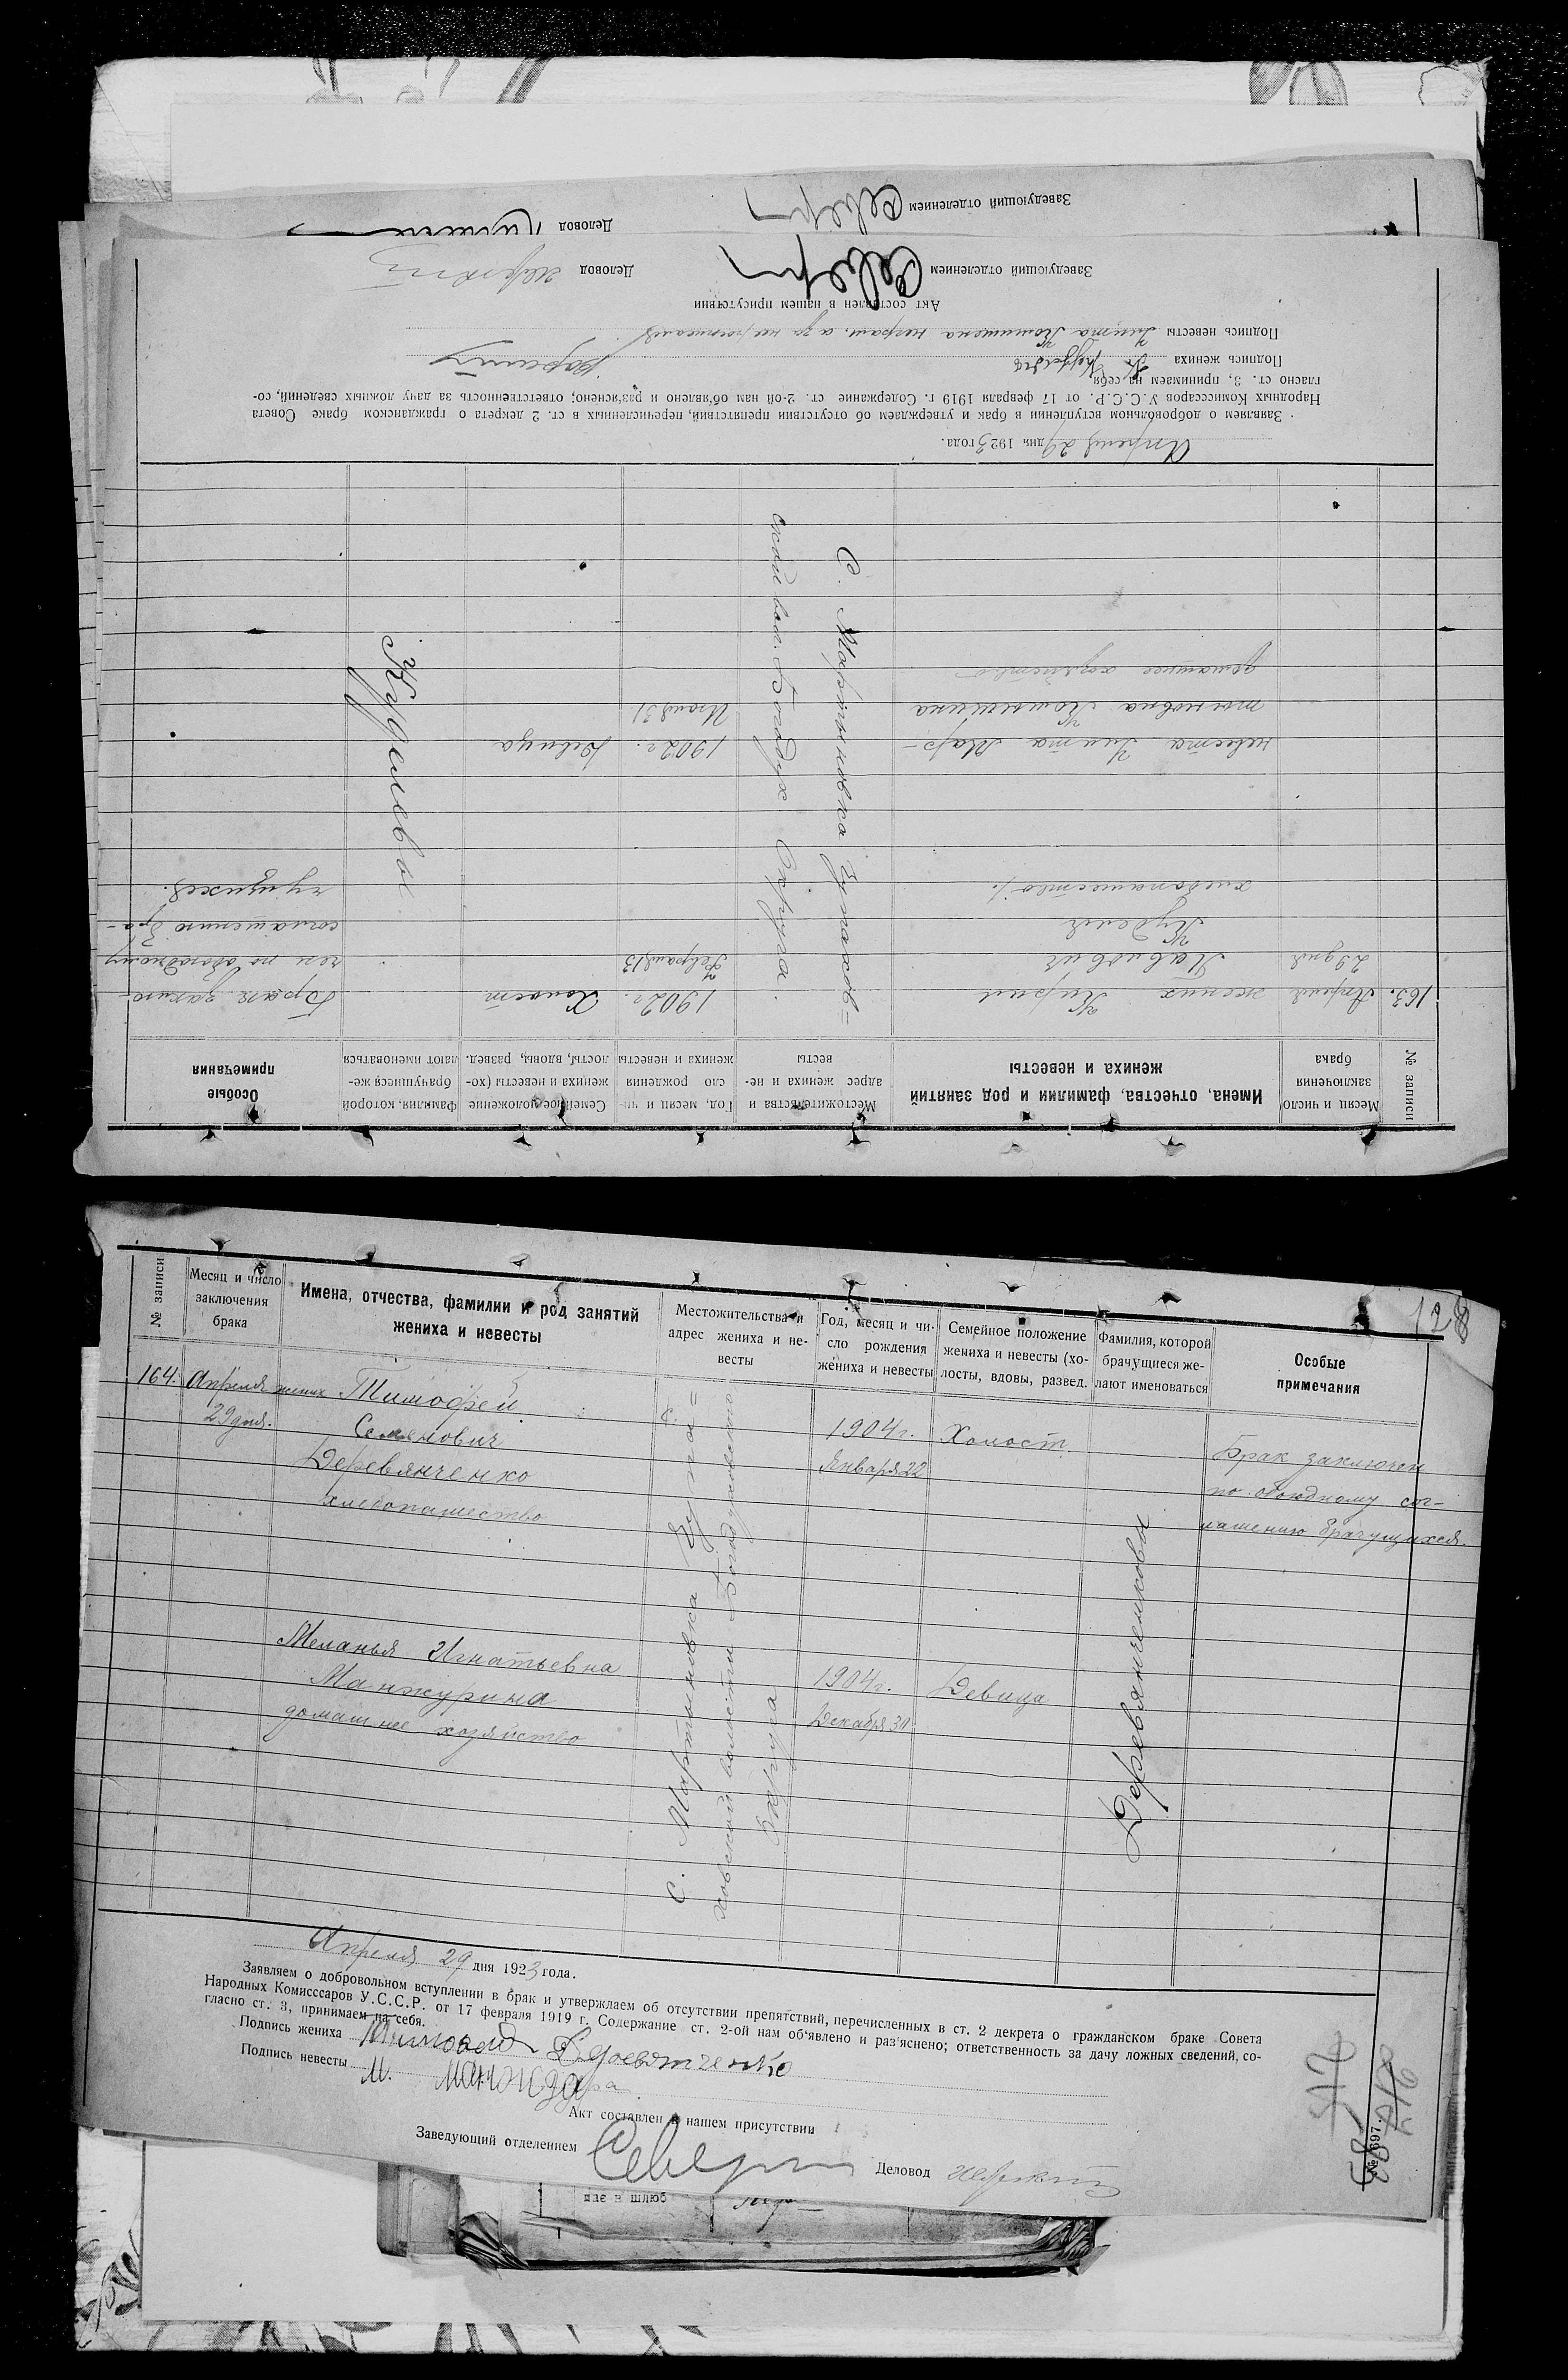 Заведующий отделением
Деловод
№ записи
Месяц и число заключения брака
Имена, отчества, фамилии и род занятий жениха и невесты
Местожительства и адрес жениха и невесты
Год, месяц и число рождения жениха и невесты
Семейное положение жениха и невесты (холосты, вдовы, развед.
Фамилия, которой брачущиеся желают именоваться
Особые примечания
163. Апреля жених Кирил 1902 г. Холост Брак заклю-
29 дня Павлович Февраля 13 чен по обоюдному
Куделя соглашению бра-
хлебопашество чущихся.
невеста Улита Мар- 1902 г. Девица
тыновна
домашнее хозяйство
С. Мартыновка Купьхов=
ской вол. Богодух. Округа.
Куделевы
Апреля 29 дня 1923 года.
Заявляем о добровольном вступлении в брак и утверждаем об отсутствии препятствий, перечисленных в ст. 2 декрета о гражданском браке Совета
Народных Комиссаров У.С.С.Р. от 17 февраля 1919 г. Содержание ст. 2-ой нам об'явлено и раз'яснено; ответственность за дачу ложных сведений, со-
гласно ст. 3, принимаем на себя
Подпись жениха
Подпись невесты Улита
Акт составлен в нашем присутствии
Заведующий отделением
Деловод
128
№ записи
Месяц и число
заключения
брака
Имена, отчества, фамилии и род занятий
жениха и невесты
Местожительства и
адрес жениха и не-
весты
Год, месяц и чи-
сло рождения
жениха и невесты
Семейное положение
жениха и невесты (хо-
лосты, вдовы, развед.
Фамилия, которой
брачущиеся же-
лают именоваться
Особые
примечания
164. Апреля жених Тимофей
29 дня. Семенович
Деревянченко
хлебопашество
1904 г. Холост
Января 22
Брак заключен
по обоюдному сог-
лашению брачущихся.
Меланья Игнатьевна
Манжурина
домашнее хозяйство
1904 г. Девица
Декабря 30
С. Мартыновка
ховской волости Богодуховского
Округа
Деревянченковы
Апреля 29 дня 1923 года.
Заявляем о добровольном вступлении в брак и утверждаем об отсутствии препятствий, перечисленных в ст. 2 декрета о гражданском браке Совета
Народных Комисссаров У.С.С.Р. от 17 февраля 1919 г. Содержание ст. 2-ой нам об'явлено и раз'яснено; ответственность за дачу ложных сведений, со-
гласно ст. 3, принимаем на себя.
Подпись жениха
Подпись невесты М.
Акт составлен в нашем присутствии
Заведующий отделением
Деловод
№ 697.